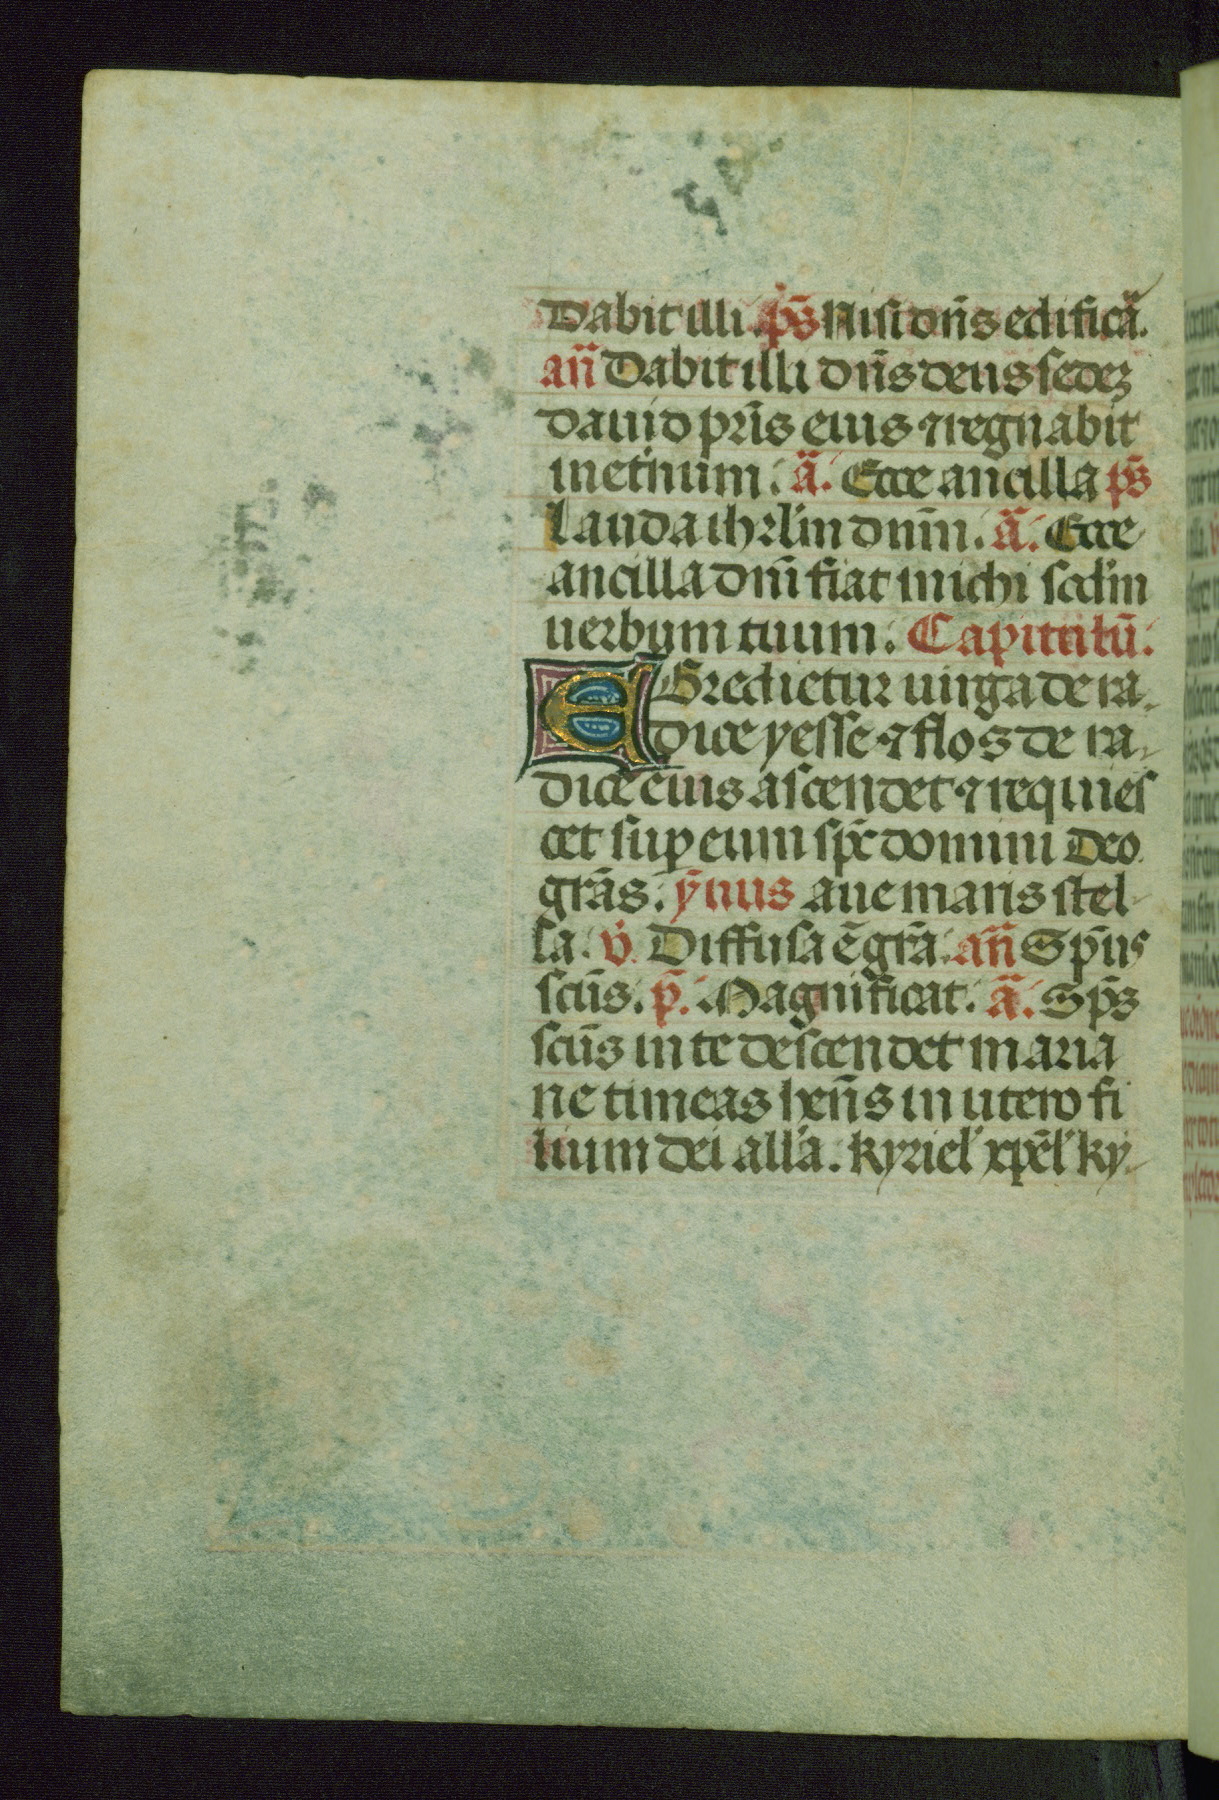 Dabit illi. p̄s Nisi dn̄s edificā.
an̄ Dabit illi dn̄s deus sedeꝫ
dauid pr̄is eius ⁊ regnabit
in et'num. ā. Ecce ancilla p̄s
Lauda ihrl'm dnm̄. ā. Ecce
ancilla dn̄i fiat michi scd'm
uerbum tuum. Capitulū.
EGredietur uirga de ra-
dice yesse ⁊ flos de ra-
dice eius ascendet ⁊ requies
cet sup eum sp̄c domini Deo
grās. ȳnus aue maris stel-
la. v̇. Diffusa ē gr̄a. an̄ Sp̄us
scūs. p̄. Magnificat. ā. Sp̄s
scūs in te descendet maria
ne timeas hēn̄s in utero fi
lium dei all'a. kyriel' xp̄el' ky-